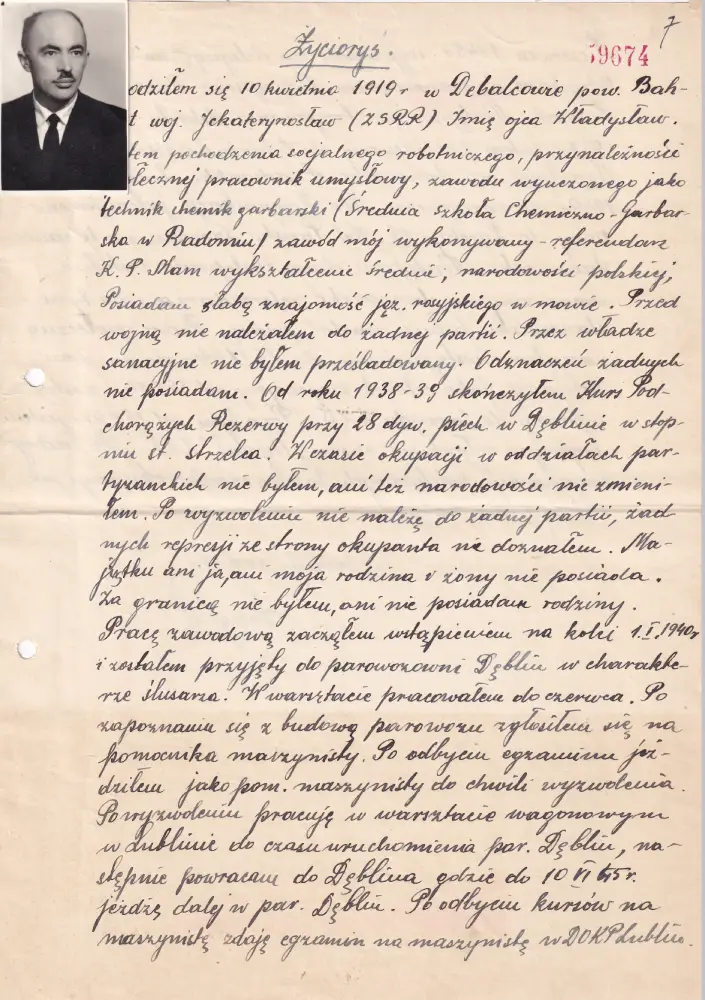 7
Życiorys.
59674
odziłem się 10 kwietnia 1919 r w Debalcowie pow. Bah-
t woj. Jekaterynosław (ZSRR) Imię ojca Władysław.
tem pochodzenia socjalnego robotniczego, przynależność
łecznej pracownik umysłowy, zawodu wyuczonego jako
technik chemik garbarski (Średnia szkoła Chemiczno-Garbar-
ska w Radomiu) zawód mój wykonywany - referendarz
K.P. Mam wykształcenie średnie, narodowości polskiej,
Posiadam słabą znajomość jęz. rosyjskiego w mowie. Przed
wojną nie należałem do żadnej partii. Przez władze
sanacyjne nie byłem prześladowany. Odznaczeń żadnych
nie posiadam. Od roku 1938-39 skończyłem Kurs Pod-
chorążych Rezerwy przy 28 dyw. piech w Dęblinie w stop-
niu st. strzelca. W czasie okupacji w oddziałach par-
tyzanckich nie byłem, ani też narodowości nie zmieni-
łem. Po wyzwoleniu nie należę do żadnej partii, żad
nych represji ze strony okupanta nie doznałem. Ma-
jątku ani ja, ani moja rodzina i żony nie posiada.
Za granicą nie byłem, ani nie posiadam rodziny.
Pracę zawodową zacząłem wstąpieniem na kolei 1.I.1940r
i zostałem przyjęty do parowozowni Dęblin w charakte-
rze ślusarza. W warsztacie pracowałem do czerwca. Po
zapoznaniu się z budową parowozu zgłosiłem się na
pomocnika maszynisty. Po odbyciu egzaminu jeź-
dziłem jako pom. maszynisty do chwili wyzwolenia.
Po wyzwoleniu pracuję w warsztacie wagonowym
w Lublinie do czasu uruchomienia par. Dęblin, na-
stępnie powracam do Dęblina gdzie do 10 VI 45 r.
jeżdżę dalej w par. Dęblin. Po odbyciu kursów na
maszynistę zdaję egzamin na maszynistę w DOKP Lublin.